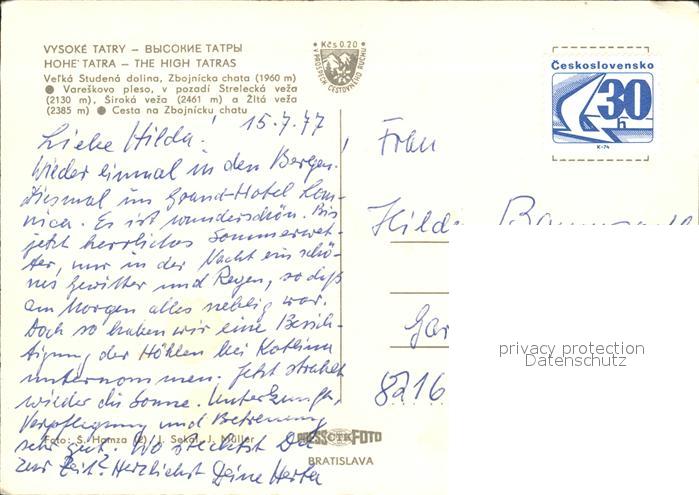 VYSOKÉ TATRY – ВЫСОКИЕ ТАТРЫ
HOHE TATRA – THE HIGH TATRAS
Veľká Studená dolina, Zbojnícka chata (1960 m)
● Vareškovo pleso, v pozadí Strelecká veža
(2130 m), Široká veža (2461 m) a Žltá veža
(2385 m) ● Cesta na Zbojnícku chatu
Kčs 0.20
V PROSPECH CESTOVNÉHO RUCHU
Československo
30
h
K-74
15.7.77
Liebe Hilda!
Wieder einmal in den Bergen!
Diesmal im Grand-Hotel Lom-
nica. Es ist wunderschön. Bis
jetzt herrliches Sommerwet-
ter, nur in der Nacht ein schö-
nes Gewitter und Regen, so daß
am Morgen alles neblig war.
Doch so haben wir eine Besich-
tigung der Höhlen bei Kotlina
unternommen. Jetzt strahlt
wieder die Sonne. Unterkunft,
Verpflegung und Betreuung
sehr gut. Wo steckst Du
zur Zeit? Herzlichst Deine Herta
Foto: S. Hamza (2), J. Sekal, J. Müller
PRESSČTKFOTO
BRATISLAVA
Frau
Hilde
8216
privacy protection
Datenschutz